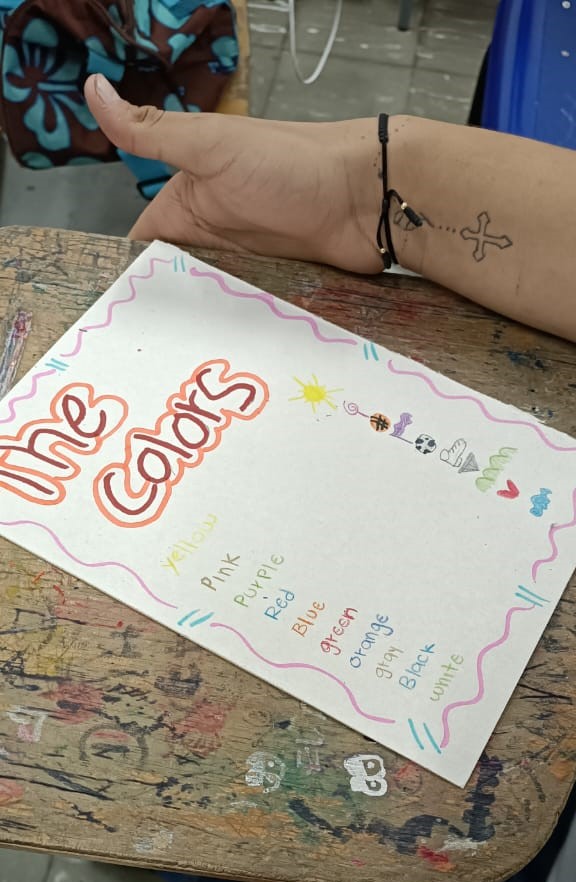 The
Colors
yellow
Pink
Purple
Red
Blue
green
orange
gray
Black
white